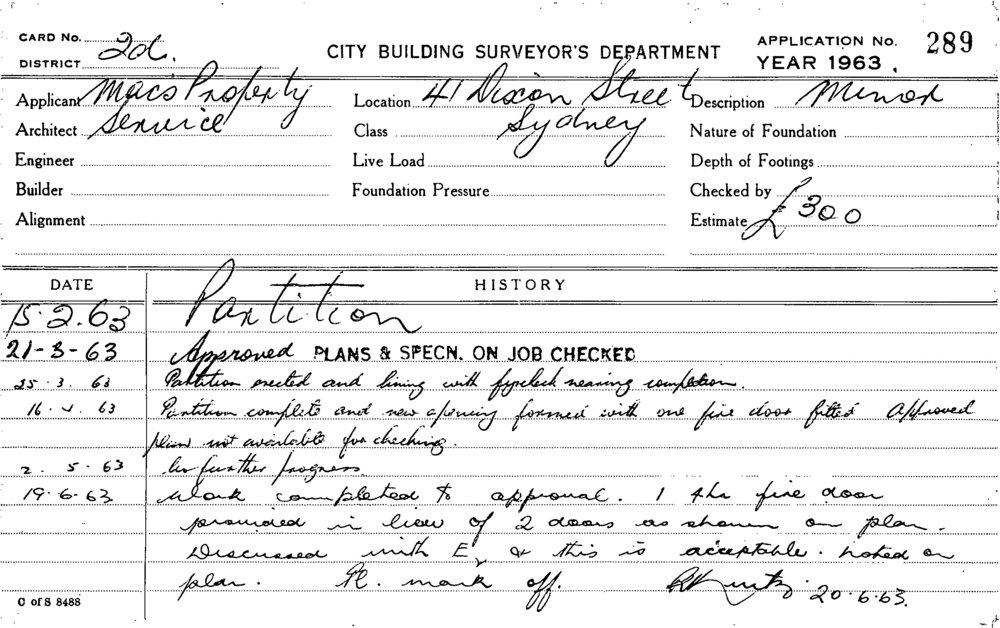 CARD No. 2d.
DISTRICT
CITY BUILDING SURVEYOR'S DEPARTMENT
APPLICATION No. 289
YEAR 1963.
Applicant Macs Property
Location 41 Dixon Street
Description Minor
Architect Service
Class Sydney
Nature of Foundation
Engineer
Live Load
Depth of Footings
Builder
Foundation Pressure
Checked by
Alignment
Estimate £300
DATE HISTORY
15.2.63 Partition
21-3-63 Approved PLANS & SPECN. ON JOB CHECKED
25.3.63 Partition erected and lining with fyrchek nearing completion.
16.4.63 Partition complete and new opening formed with one fire door fitted Approved
plan not available for checking.
2.5.63 No further progress
19.6.63 Work completed to approval. 1 4hr fire door
provided in lieu of 2 doors as shown on plan.
Discussed with E, & this is acceptable. Noted on
plan. Pl. mark off. 20.6.63.
C of S 8488